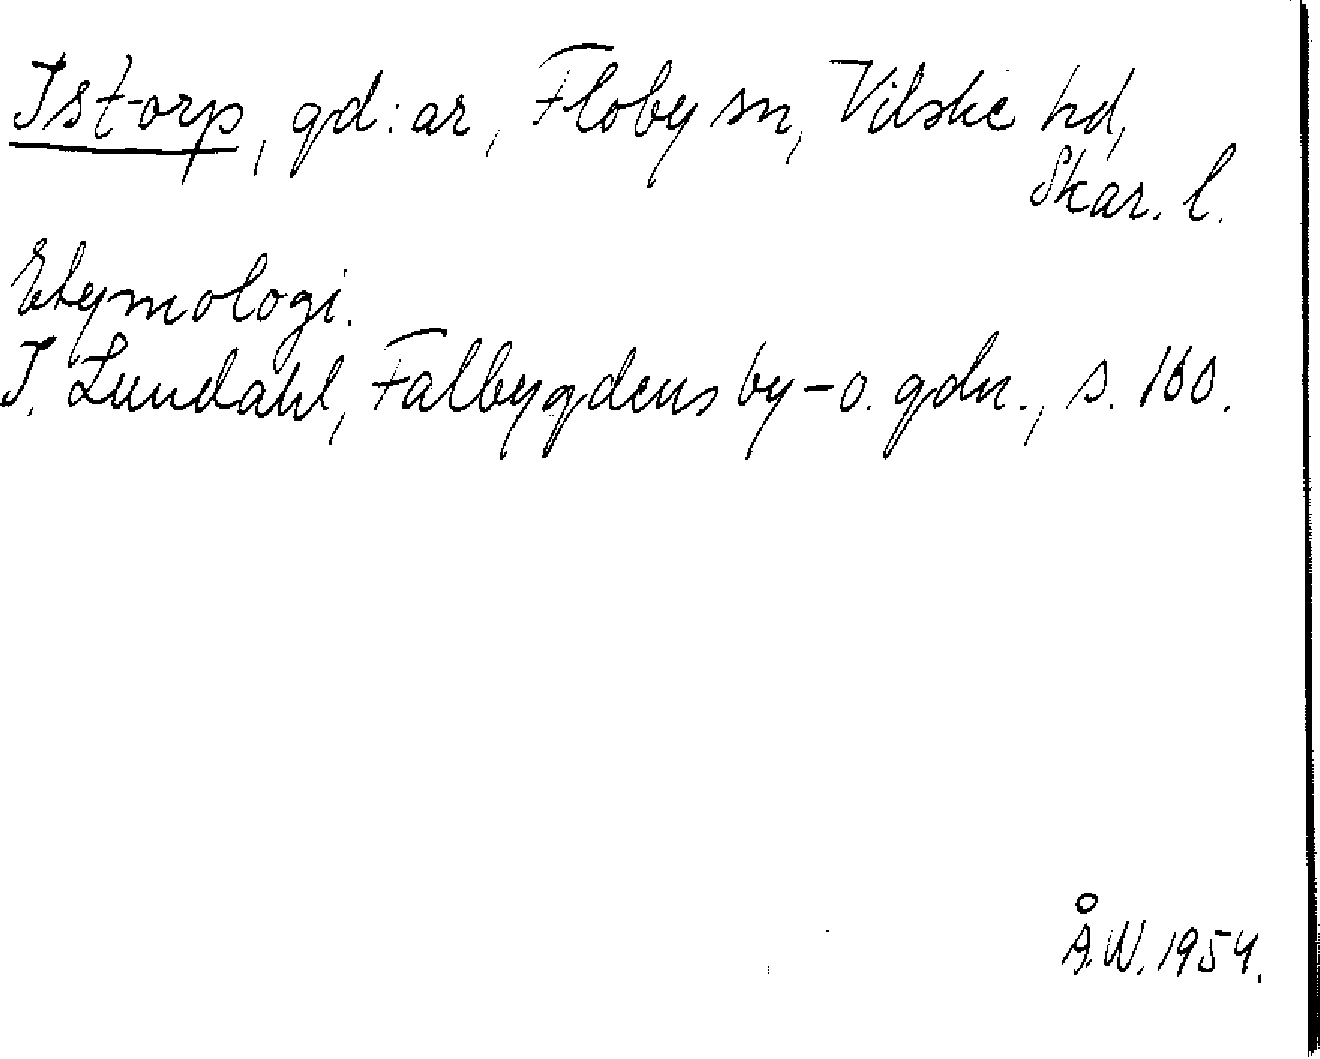 Istorp, gd:ar, Floby sn, Vilske hd,
Skar. l.
Etymologi.
I. Lundahl, Falbygdens by- o. gdn., s. 160.
Å.W. 1954.